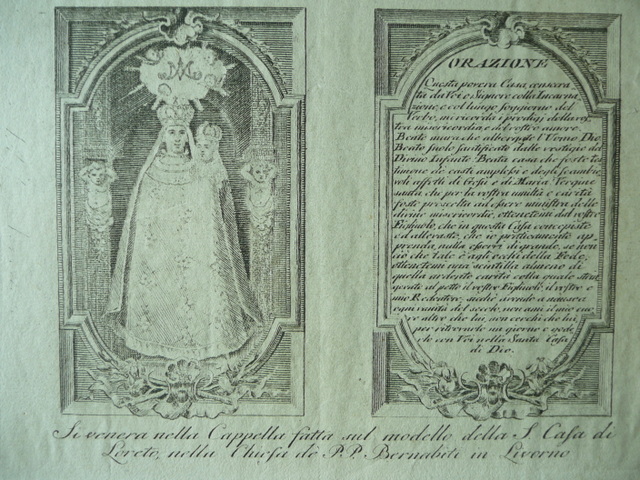 ORAZIONE
Questa povera Casa, consacra
ta da Voi o Signore colla Incarna
zione, e col lungo soggiorno del
Verbo, mi ricorda i prodigj della vos
tra misericordia, e del vostro amore.
Beate mura che albergaste l'Uomo Dio
Beato suolo santificato dalle vestigia del
Divino Infante. Beata casa che foste tes
timone de casti amplessi e degli scambie
voli affetti di Gesù e di Maria. Vergine
santa che per la vostra umiltà e carità
foste prescelta ad essere ministra delle
divine misericordie, ottenetemi dal vostro
Figliuolo, che in questa Casa concepiste
ed allevaste, che io praticamente ap
prenda, nulla esservi di grande, se non
ciò che tale è agli occhi della Fede;
ottenetemi una scintilla almeno di
quella ardente carità colla quale strin
geste al petto il vostro Figliuolo, il vostro e
mio Redentore, sicchè avendo a nausea
ogni vanità del secolo, non ami il mio cuo
re altro che lui, non cerchi che lui,
per ritrovarlo un giorno e gode
rlo con Voi nella Santa Casa
di Dio.
Si venera nella Cappella fatta sul modello della S. Casa di
Loreto, nella Chiesa de P.P. Bernabiti in Livorno